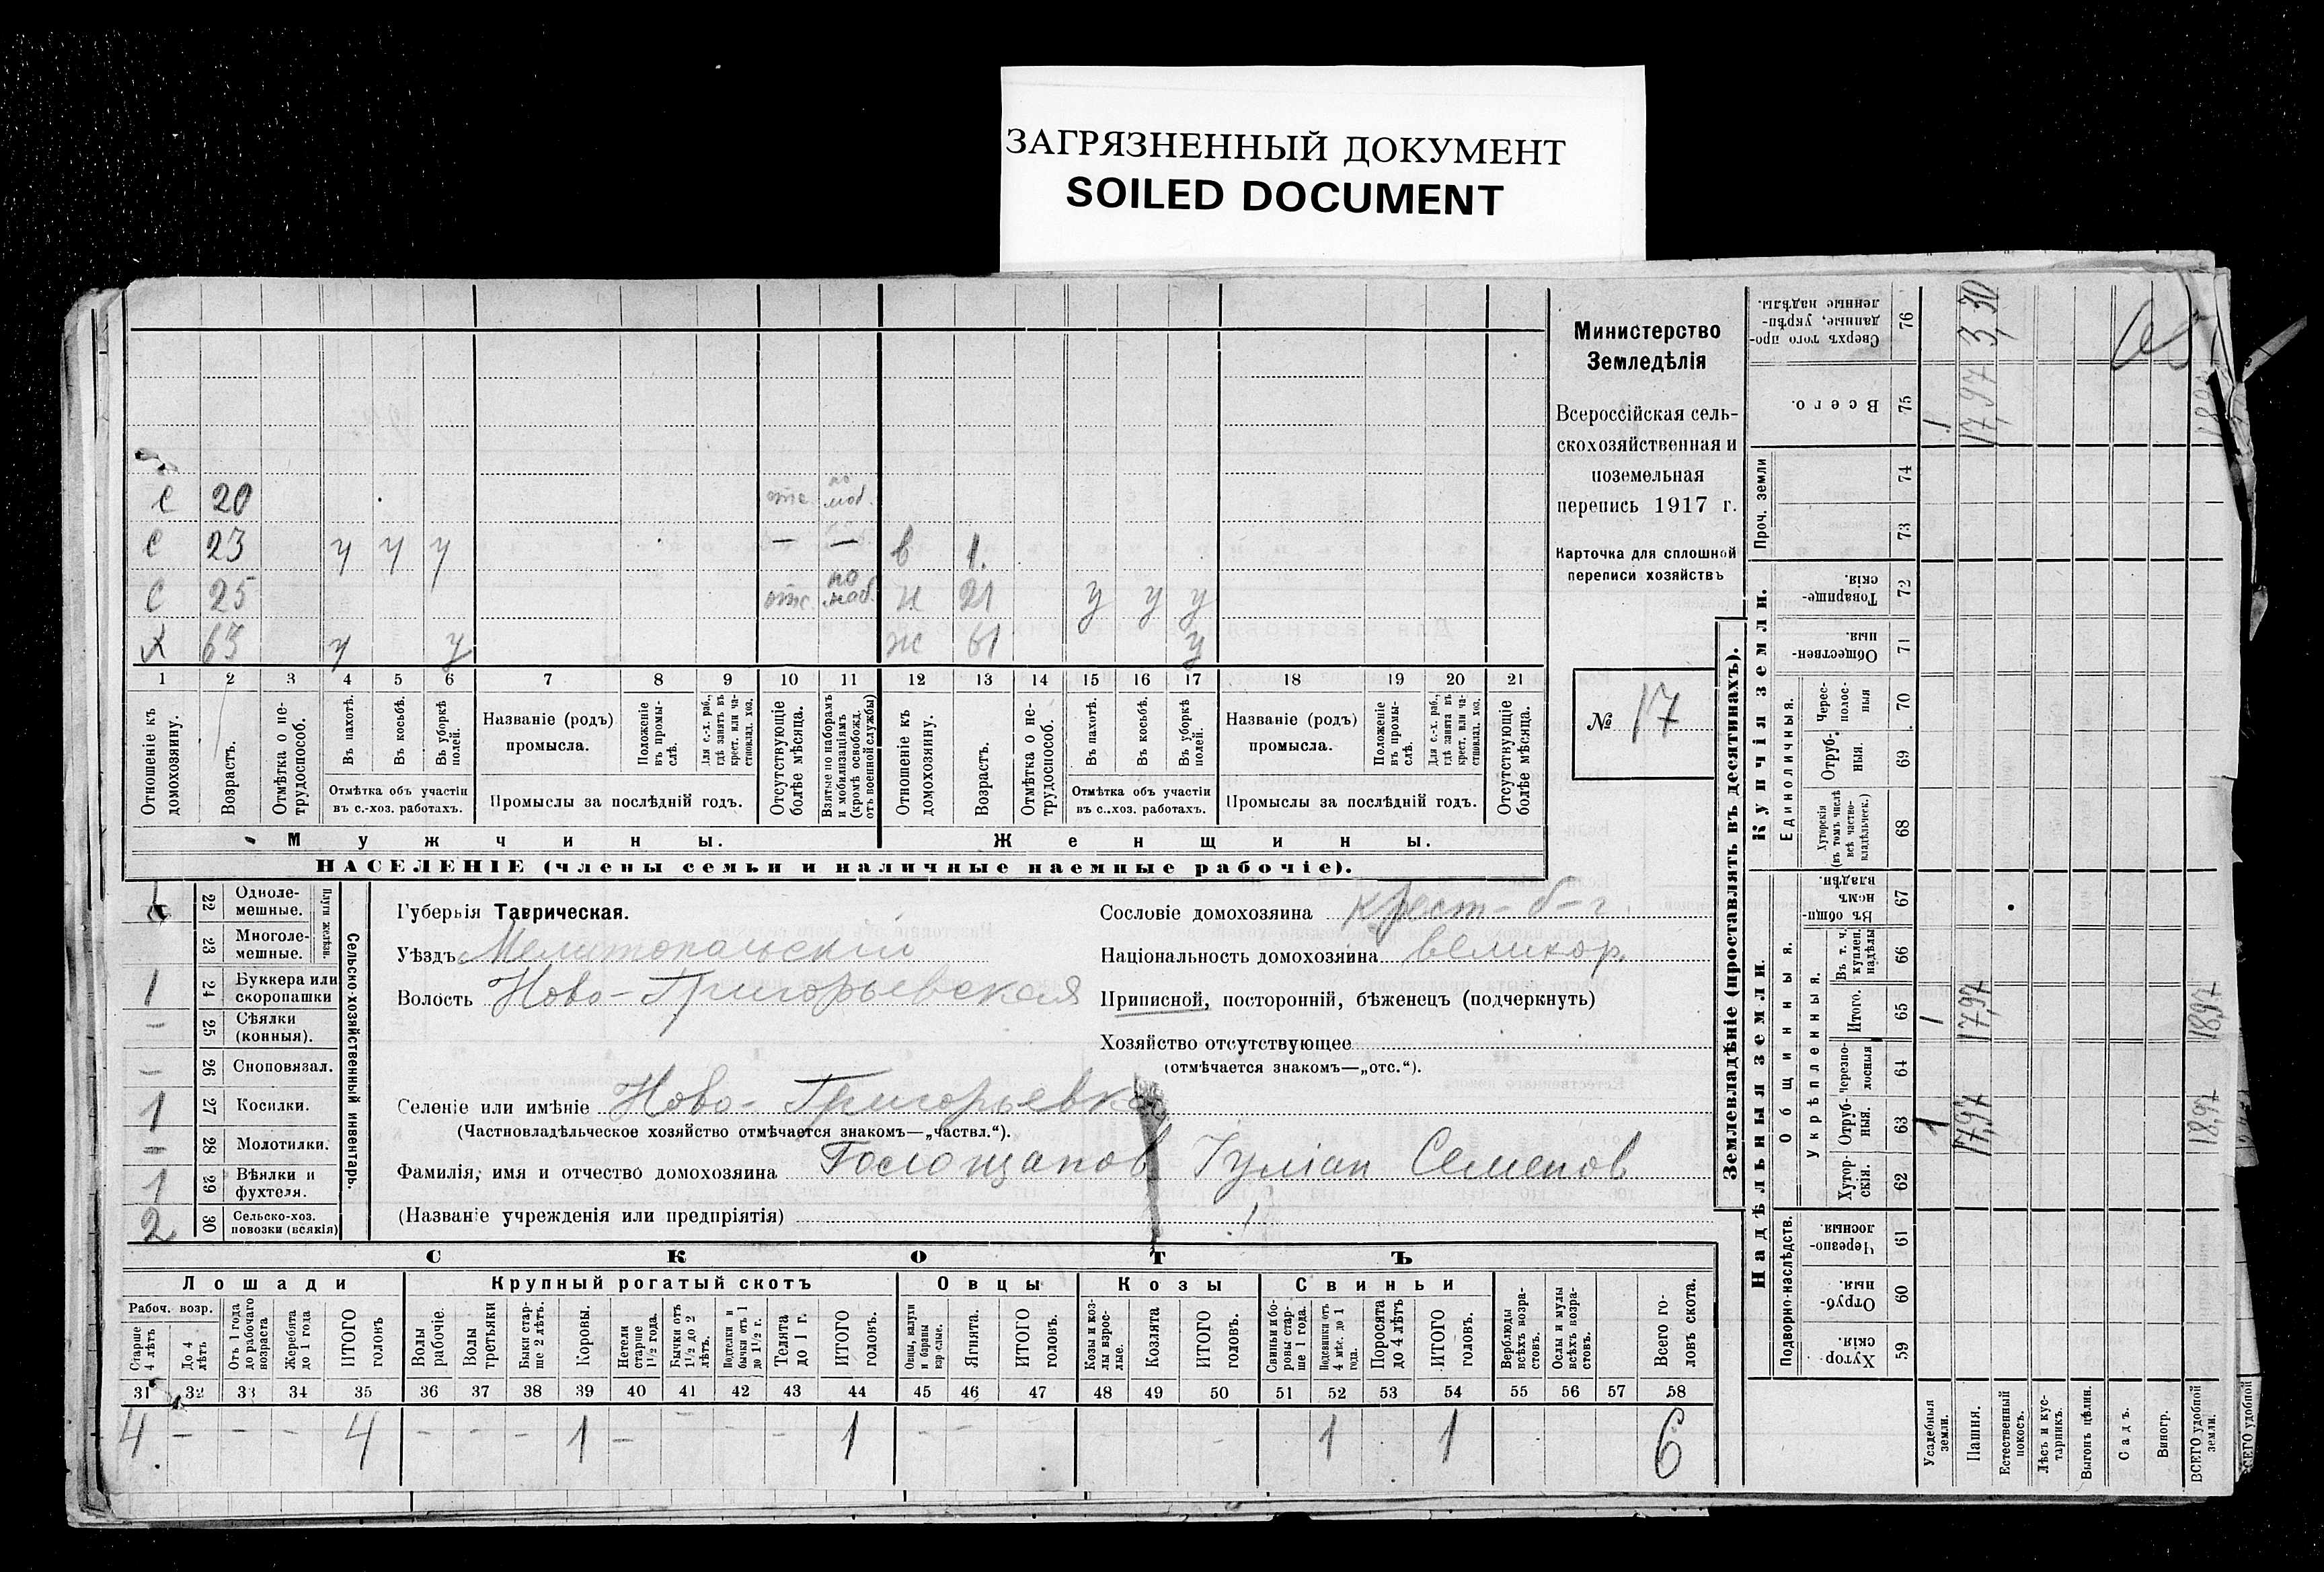 ЗАГРЯЗНЕННЫЙ ДОКУМЕНТ
SOILED DOCUMENT
С 20 отс. по моб.
С 23 у у у — — в 1.
С 25 отс. по моб. н 21 у у у
Х 63 у у ж 61 у
1 2 3 4 5 6 7 8 9 10 11 12 13 14 15 16 17 18 19 20 21
Отношеніе къ домохозяину.
Возрастъ.
Отмѣтка о не-
трудоспособ.
Въ пахотѣ.
Въ косьбѣ.
Въ уборкѣ полей.
Отмѣтка объ участіи
въ с.-хоз. работахъ.
Названіе (родъ)
промысла.
Положеніе въ промы-
слѣ.
Для с.-х. раб.,
гдѣ занятъ въ
крест. или ча-
стновлад. хоз.
Промыслы за послѣдній годъ.
Отсутствующіе
болѣе мѣсяца.
Взятые по наборамъ
и мобилизаціямъ
(кромѣ освобожд.
отъ военной службы)
Отношеніе къ
домохозяину.
Возрастъ.
Отмѣтка о не-
трудоспособ.
Въ пахотѣ.
Въ косьбѣ.
Въ уборкѣ
полей.
Отмѣтка объ участіи
въ с.-хоз. работахъ.
Названіе (родъ)
промысла.
Положеніе
въ промы-
слѣ.
Для с.-х. раб.,
гдѣ занята въ
крест. или ча-
стновлад. хоз.
Промыслы за послѣдній годъ.
Отсутствующіе
болѣе мѣсяца.
Мужчины. Женщины.
НАСЕЛЕНІЕ (члены семьи и наличные наемные рабочіе).
Министерство
Земледѣлія
Всероссійская сель-
скохозяйственная и
поземельная
перепись 1917 г.
Карточка для сплошной
переписи хозяйствъ
№ 17
22 Одноле-
мешные.
23 Многоле-
мешные.
Плуги желѣзн.
1 24 Буккера или
скоропашки
– 25 Сѣялки
(конныя).
– 26 Сноповязал.
1 27 Косилки.
– 28 Молотилки.
1 29 Вѣялки и
фухтеля.
2 30 Сельско-хоз.
повозки (всякія)
Сельско-хозяйственный инвентарь.
Губернія Таврическая.
Уѣздъ Мелитопольскій
Волость Ново-Григорьевская
Селеніе или имѣніе Ново-Григорьевка
(Частновладѣльческое хозяйство отмѣчается знакомъ—„частвл.“).
Фамилія, имя и отчество домохозяина Голощапов Іуліан Семенов
(Названіе учрежденія или предпріятія)
Сословіе домохозяина крест-б-г.
Національность домохозяина великор.
Приписной, посторонній, бѣженецъ (подчеркнуть)
Хозяйство отсутствующее
(отмѣчается знакомъ—„отс.“).
СКОТЪ
Лошади Крупный рогатый скотъ Овцы Козы Свиньи
Рабоч. возр.
Старше
4 лѣтъ
До 4
лѣтъ
Отъ 1 года
до рабочаго
возраста
Жеребята
до 1 года
ИТОГО
головъ
Волы
рабочіе.
Волы
третьяки
Быки стар-
ше 2 лѣтъ.
Коровы.
Нетели
старше
1½ года.
Бычки отъ
1½ до 2
лѣтъ.
Подтелки и
бычки отъ 1
до 1½ г.
Телята
до 1 г.
ИТОГО
головъ.
Овцы, валухи
и бараны
взрослые.
Ягнята.
ИТОГО
головъ.
Козы и коз-
лы взрос-
лые.
Козлята
ИТОГО
головъ.
Свиньи и бо-
ровы стар-
ше 1 года.
Подсвинки отъ
4 мѣс. до 1
года.
Поросята
до 4 лѣтъ
ИТОГО
головъ.
Верблюды
всѣхъ возра-
стовъ.
Ослы и мулы
всѣхъ возра-
стовъ.
Всего го-
ловъ скота.
31 32 33 34 35 36 37 38 39 40 41 42 43 44 45 46 47 48 49 50 51 52 53 54 55 56 57 58
4 – – – 4 – – – 1 – – – 1 – – – 1 1 6
Землевладѣніе (проставлять въ десятинахъ).
Надѣльныя земли. Купчія земли.
Подворно-наслѣдств.
Общинныя.
Укрѣпленныя.
Единоличныя.
Проч. земли
Хутор
скія. 59
Отруб-
ныя. 60
Черезпо-
лосныя 61
Хутор-
скія. 62
Отруб-
ныя. 63
Черезпо-
лосныя 64
Итого. 65
Въ т. ч.
куплен.
надѣлы 66
Въ общи-
номъ
владѣн. 67
Хуторскія
(въ томъ числѣ
всѣ частно-
владѣльческ.) 68
Отруб-
ныя. 69
Черес-
полос-
ныя 70
Обществен-
ныя. 71
Товарище-
скія. 72
73
74
Всего. 75
Сверхъ того про-
данные, укрѣп-
ленные надѣлы. 76
Усадебныя
земли. 1 1 1
Пашня. 17,97 17,97 17,97 3,30
Естественный
покосъ.
Лѣсъ и кус-
тарникъ.
Выгонъ цѣлин.
Садъ.
Виногр.
ВСЕГО удобной
земли. 18,97 18,97